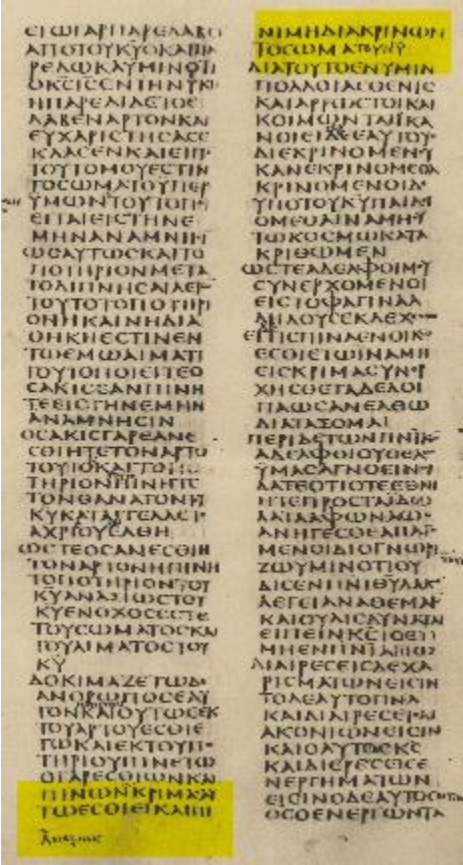 ΕΓΩΓΑΡΠΑΡΕΛΑΒΟ
ΑΠΟΤΟΥΚΥΟΚΑΙΠΑ
ΡΕΔΩΚΑΥΜΙΝΟΤΙ
ΟΚϹΙϹΕΝΤΗΝΥΚΤΙ
ΗΠΑΡΕΔΙΔΕΤΟΕ
ΛΑΒΕΝΑΡΤΟΝΚΑΙ
ΕΥΧΑΡΙϹΤΗϹΑϹΕ
ΚΛΑϹΕΝΚΑΙΕΙΠΕ
ΤΟΥΤΟΜΟΥΕϹΤΙΝ
ΤΟϹΩΜΑΤΟΥΠΕΡ
ΥΜΩΝΤΟΥΤΟΠΟΙ
ΕΙΤΑΙΕΙϹΤΗΝΕ
ΜΗΝΑΝΑΜΝΗϹΙ
ΩϹΑΥΤΩϹΚΑΙΤΟ
ΠΟΤΗΡΙΟΝΜΕΤΑ
ΤΟΔΙΠΝΗϹΑΙΛΕΓ
ΤΟΥΤΟΤΟΠΟΤΗΡΙ
ΟΝΗΚΑΙΝΗΔΙΑ
ΘΗΚΗΕϹΤΙΝΕΝ
ΤΩΕΜΩΑΙΜΑΤΙ
ΤΟΥΤΟΠΟΙΕΙΤΕΟ
ϹΑΚΙϹΕΑΝΠΙΝΗ
ΤΕΕΙϹΤΗΝΕΜΗΝ
ΑΝΑΜΝΗϹΙΝ
ΟϹΑΚΙϹΓΑΡΕΑΝΕ
ϹΘΙΗΤΕΤΟΝΑΡΤΟ
ΤΟΥΤΟΚΑΙΤΟΠΟ
ΤΗΡΙΟΝΠΙΝΗΤΕ
ΤΟΝΘΑΝΑΤΟΝΤΟΥ
ΚΥΚΑΤΑΓΓΕΛΛΕΤΕ
ΑΧΡΙΟΥΕΛΘΗ
ΩϹΤΕΟϹΑΝΕϹΘΙΗ
ΤΟΝΑΡΤΟΝΗΠΙΝΗ
ΤΟΠΟΤΗΡΙΟΝΤΟΥ
ΚΥΑΝΑΞΙΩϹΤΟΥ
ΚΥΕΝΟΧΟϹΕϹΤΕ
ΤΟΥϹΩΜΑΤΟϹΚΑΙ
ΤΟΥΑΙΜΑΤΟϹΤΟΥ
ΚΥ
ΔΟΚΙΜΑΖΕΤΩΔΕ
ΑΝΘΡΩΠΟϹΕΑΥ
ΤΟΝΚΑΙΟΥΤΩϹΕΚ
ΤΟΥΑΡΤΟΥΕϹΘΙΕ
ΤΩΚΑΙΕΚΤΟΥΠΟ
ΤΗΡΙΟΥΠΙΝΕΤΩ
ΟΓΑΡΕϹΘΙΩΝΚΑΙ
ΠΙΝΩΝΚΡΙΜΑΕΑΥ
ΤΩΕϹΘΙΕΙΚΑΙΠΙ
ΝΙΜΗΔΙΑΚΡΙΝΩΝ
ΤΟϹΩΜΑ
ΔΙΑΤΟΥΤΟΕΝΥΜΙΝ
ΠΟΛΛΟΙΑϹΘΕΝΙϹ
ΚΑΙΑΡΡΩϹΤΟΙΚΑΙ
ΚΟΙΜΩΝΤΑΙΙΚΑ
ΝΟΙΕΙΔΕΕΑΥΤΟΥϹ
ΔΙΕΚΡΙΝΟΜΕΝΟΥ
ΚΑΝΕΚΡΙΝΟΜΕΘΑ
ΚΡΙΝΟΜΕΝΟΙΔΕ
ΥΠΟΤΟΥΚΥΠΑΙΔΕΥ
ΟΜΕΘΑΙΝΑΜΗϹΥ
ΤΩΚΟϹΜΩΚΑΤΑ
ΚΡΙΘΩΜΕΝ
ΩϹΤΕΑΔΕΛΦΟΙΜΟΥ
ϹΥΝΕΡΧΟΜΕΝΟΙ
ΕΙϹΤΟΦΑΓΙΝΑΛ
ΛΗΛΟΥϹΕΚΔΕΧΕϹΘΕ
ΕΙΤΙϹΠΙΝΑΕΝΟΙΚΩ
ΕϹΘΙΕΤΩΙΝΑΜΗ
ΕΙϹΚΡΙΜΑϹΥΝΕΡ
ΧΗϹΘΕΤΑΔΕΛΟΙ
ΠΑΩϹΑΝΕΛΘΩ
ΔΙΑΤΑΞΟΜΑΙ
ΠΕΡΙΔΕΤΩΝΠΝΙΚΩ
ΑΔΕΛΦΟΙΟΥΘΕΛΩ
ΥΜΑϹΑΓΝΟΕΙΝΟΙ
ΔΑΤΕΟΤΙΟΤΕΕΘΝΗ
ΗΤΕΠΡΟϹΤΑΙΔΩ
ΛΑΤΑΑΦΩΝΑΩϹ
ΑΝΗΓΕϹΘΕΑΠΑΓΟ
ΜΕΝΟΙΔΙΟΓΝΩΡΙ
ΖΩΥΜΙΝΟΤΙΟΥ
ΔΙϹΕΝΠΝΙΘΥΛΑΛΩ
ΛΕΓΕΙΑΝΑΘΕΜΑΙϹ
ΚΑΙΟΥΔΙϹΔΥΝΑΤΑΙ
ΕΙΠΕΙΝΚϹΙϹΕΙ
ΜΗΕΝΠΝΙΑΓΙΩ
ΔΙΑΙΡΕϹΕΙϹΔΕΧΑ
ΡΙϹΜΑΤΩΝΕΙϹΙΝ
ΤΟΔΕΑΥΤΟΠΝΑ
ΚΑΙΔΙΑΙΡΕϹΕΙϹΔΙ
ΑΚΟΝΙΩΝΕΙϹΙΝ
ΚΑΙΟΑΥΤΟϹΚϹ
ΚΑΙΔΙΕΡΕϹΕΙϹΕ
ΝΕΡΓΗΜΑΤΩΝ
ΕΙϹΙΝΟΔΕΑΥΤΟϹ
ΘϹΟΕΝΕΡΓΩΝΤΑ